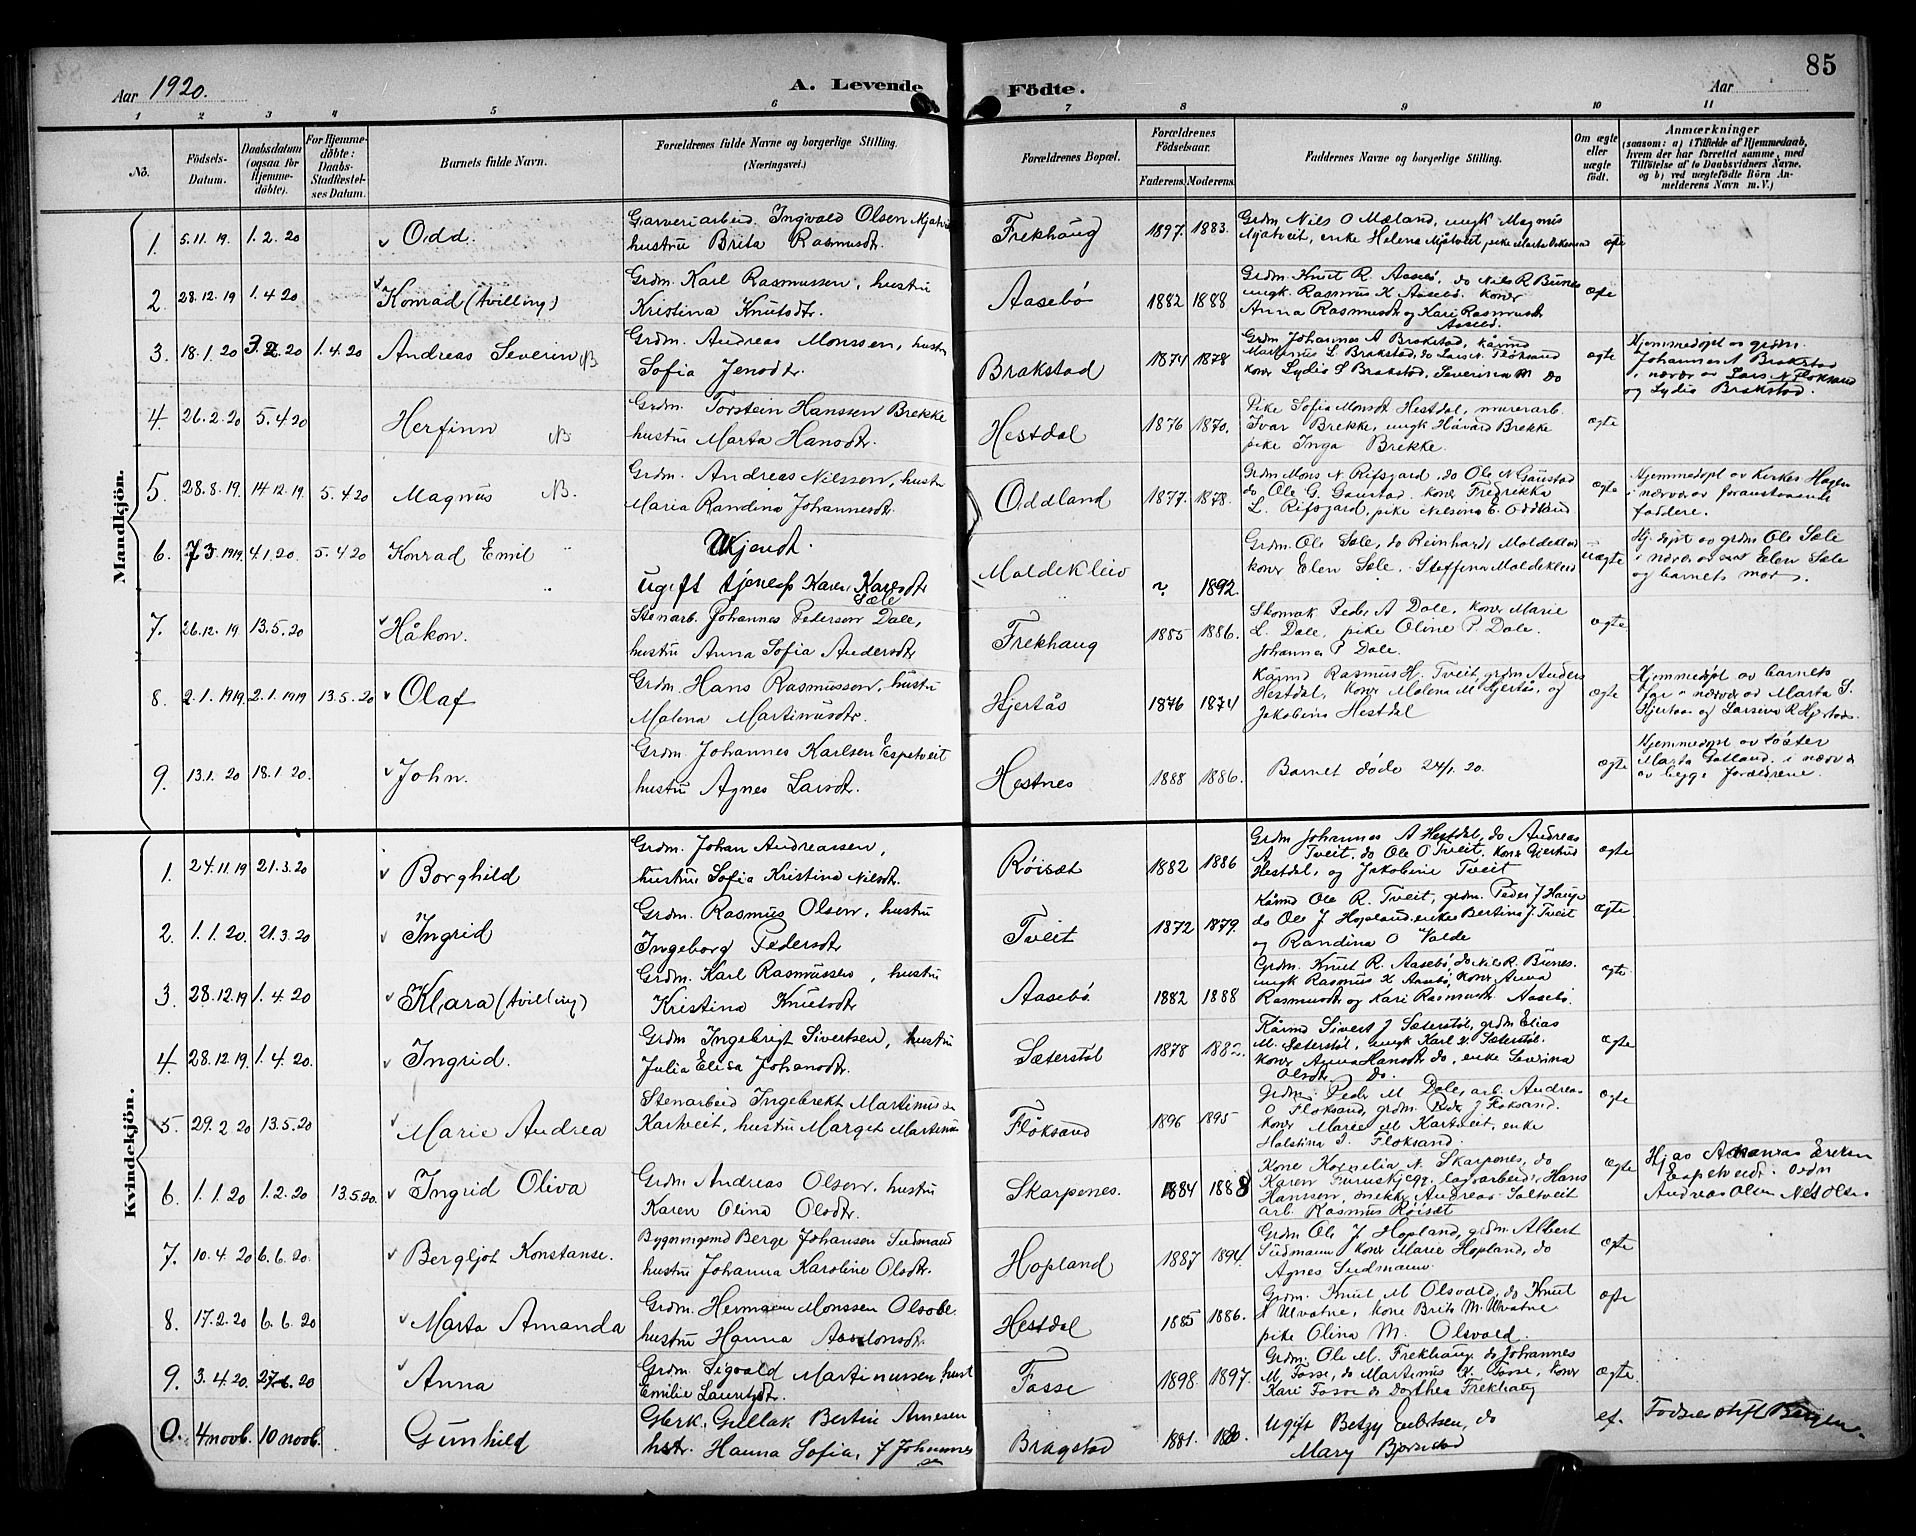 85
Aar 1920. A. Levende Födte. Aar
1 2 3 4 5 6 7 8 9 10 11
No. Födsels-Datum. Daabsdatum (ogsaa for Hjemmedöbte). For Hjemmedöbte: Daabs-Stadfæstelses Datum. Barnets fulde Navn. Forældrenes fulde Navne og borgerlige Stilling. (Næringsvei.) Forældrenes Bopæl. Forældrenes Födselsaar. Faderens. Moderens. Faddernes Navne og borgerlige Stilling. Om ægte eller uægte födt. Anmærkninger (saasom: a) i Tilfælde af Hjemmedaab, hvem der har forrettet samme, med Tilföielse af to Daabsvidners Navne, og b) ved uægtefödte Börn Anmelderens Navn m. V.)
Mandkjön.
1. 5.11.19. 1.2.20 Odd. Garveriarbeid. Ingvald Olsen
hustru Brita Rasmusdtr. Frekhaug 1897. 1883. Grdm Nils O Mæland, ungk Magnus
Mjatveit, enke Helena Mjatveit, pike Marta ægte
2. 28.12.19 1.4.20 Konrad (tvilling) Grdm. Karl Rasmussen, hustru
Kristina Knutsdtr. Aasebö 1882 1888 Grdm. Knut R. Aasebö, do Nils R Bunes
ungk. Rasmus K Aasebö. koner
Anna Rasmusdt og Kari Rasmusdt
Aasebö. ægte
3. 18.1.20 3.2.20 1.4.20 Andreas Severin NB Grdm. Andreas Monssen, hustru
Sofia Jensdtr. Brakstad 1874 1878 Grdm Johannes A Brakstad, kårmd
Martinus L Brakstad, do Lars N. Fløksand
koner Lydia S Brakstad, Severina M do ægte
Hjemmedøpt av grdm.
Johannes A Brakstad
i nærvær av Lars N Floksand
og Lydia Brakstad.
4. 26.2.20 5.4.20 Herfinn NB Grdm. Torstein Hanssen Brekke
hustru Marta Hansdtr. Hestdal 1876 1870. Pike Sofia Monsdt Hestdal, murerarb.
Ivar Brekke, ungk Håvard Brekke
pike Inga Brekke. ægte
5. 28.8.19. 14.12.19. 5.4.20 Magnus NB. Grdm. Andreas Nilssen, hustru
Maria Randina Johannesdtr. Oddland 1877. 1878. Grdm Mons N Rifsgard, do Ole N Gaustad
do Ole G. Gaustad. koner Fredrikke
L. Rifsgard, pike Nilsina E. Oddland ægte
Hjemmedøpt av Kirkes Hagen
i nærvær av foranstaaende
faddere.
6. 7.3.1919. 4.1.20. 5.4.20 Konrad Emil Ukjendt.
ugift tjenep Karen Karlsdtr
Sæle Moldekleiv ? 1892. Grdm. Ole Sæle, do Reinhardt Moldekleiv
koner Elen Sæle. Steffena Moldekleiv uægte
Hj. døpt av grdm Ole Sæle
i nærvær av Elen Sæle
og barnets mor.
7. 26.12.19 13.5.20 Håkon. Stenarb. Johannes Pedersen Dale,
hustru Anna Sofia Andersdtr Frekhaug 1885 1886. Skomak Peder A Dale, koner Marie
L. Dale, pike Oline P. Dale.
Johannes P Dale. ægte
8. 2.1.1919. 2.1.1919 13.5.20 Olaf Grdm. Hans Rasmussen, hustru
Malena Martinusdtr. Hjertås 1876 1874 Kårmd Rasmus H. Tveit, grdm Anders
Hestdal, koner Malena M Hjertås, og
Jakobina Hestdal ægte
Hjemmedøpt av barnets
far i nærvær av Marta S.
Hjertaas og Larsina R Hjertaas.
9. 13.1.20 18.1.20. John. Grdm. Johannes Karlsen Espetveit
hustru Agnes Larsdtr. Hestnes 1888 1886. Barnet døde 24/1.20. ægte
Hjemmedøpt av søster
Marta Gotland, i nærv
av begge forældrene.
Kvindekjön.
1. 24.11.19 21.3.20 Borghild Grdm. Johan Andreassen,
hustru Sofia Kristina Nilsdtr. Røisæt 1882 1886 Grdm Johannes A Hestdal, do Andreas
A Tveit, do Ole O Tveit, koner Gjertrud
Hestdal, og Jakobine Tveit ægte
2. 1.1.20. 21.3.20 Ingrid Grdm. Rasmus Olsen, hustru
Ingeborg Pedersdtr Tveit 1872 1879. Kårmd Ole R. Tveit, grdm. Peder J Hauge
do Ole J Hopland, enke Bertina J. Tveit
og Randina O Valde ægte.
3. 28.12.19 1.4.20 Klara (tvilling) Grdm. Karl Rasmussen, hustru
Kristina Knutsdtr Aasebø. 1882 1888 Grdm. Knut R. Aasebø, do Nils R. Bunes.
ungk Rasmus K Aasebø, koner Anna
Rasmusdt og Kari Rasmusdt. Aasebø. ægte
4. 28.12.19 1.4.20. Ingrid. Grdm Ingebrigt Sivertsen, hustru
Julia Elisa Johansdtr. Sæterstøl 1878 1882. Kårmd Sivert J Sæterstøl, grdm Elias
M. Sæterstøl, ungk Karl S. Sæterstøl.
koner Anna Hansdt do, enke Severina
Olsdtr do. ægte
5. 29.2.20 13.5.20 Marie Andrea Stenarbeid Ingebrekt Martinus
Kartveit, hustru Marget Martinus Fløksand 1896 1895 Grdm. Peder M Dale, arb. Andreas
O Floksand, grdm. Peder J Floksand.
koner Maree M Kartveit, enke
Halstina I. Floksand. ægte
6. 1.1.20 1.2.20 13.5.20. Ingrid Oliva Grdm Andreas Olsen, hustru
Karen Olina Olsdtr. Skarpenes. 1884 1888 Kone Kornelia N. Skarpenes, do
Karen Furuskjegg. lagsarbeid. Hans
Hanssen, snekker Andreas Saltveit
arb. Rasmus Røisæt ægte
Espetveit.
Andreas Olsen
7. 10.4.20 6.6.20. Bergljot Konstanse. Bygningsmd Berge Johansen Sudmand
hustru Johanna Karoline Olsdtr. Hopland 1887 1894. Grdm Ole J Hopland, grdm. Albert
Sudmann koner Marie Hopland, do
Agnes Sudmann. ægte
8. 17.2.20 6.6.20 Marta Amanda Grdm. Herman Monssen
hustru Hanna Aamonsdt. Hestdal 1885 1886. Grdm. Knut M Olsvold, do Knut
N Ulvatne, kone Brita M. Ulvatne
pike Olina M. Olsvold. ægte
9. 3.4.20. 27.6.20 Anna Grdm. Sigvald Martinussen hust
Emilie Lauritsdtr. Fosse 1898. 1897. Grdm. Ole M. Frekhaug, do Johannes
M. Fosse, do Martinus K. Fosse, koner
Kari Fosse do Dorthea Frekhaug ægte.
0. 4 novb. 10 novb. Gunhild Gullak Bertin Arnesen
hstr. Hanna Sofia, f Johannes
sen Bragstad 1881. Ugift Betzy do
Mary Bjørnstad ef. Fødselsstift Bergen.